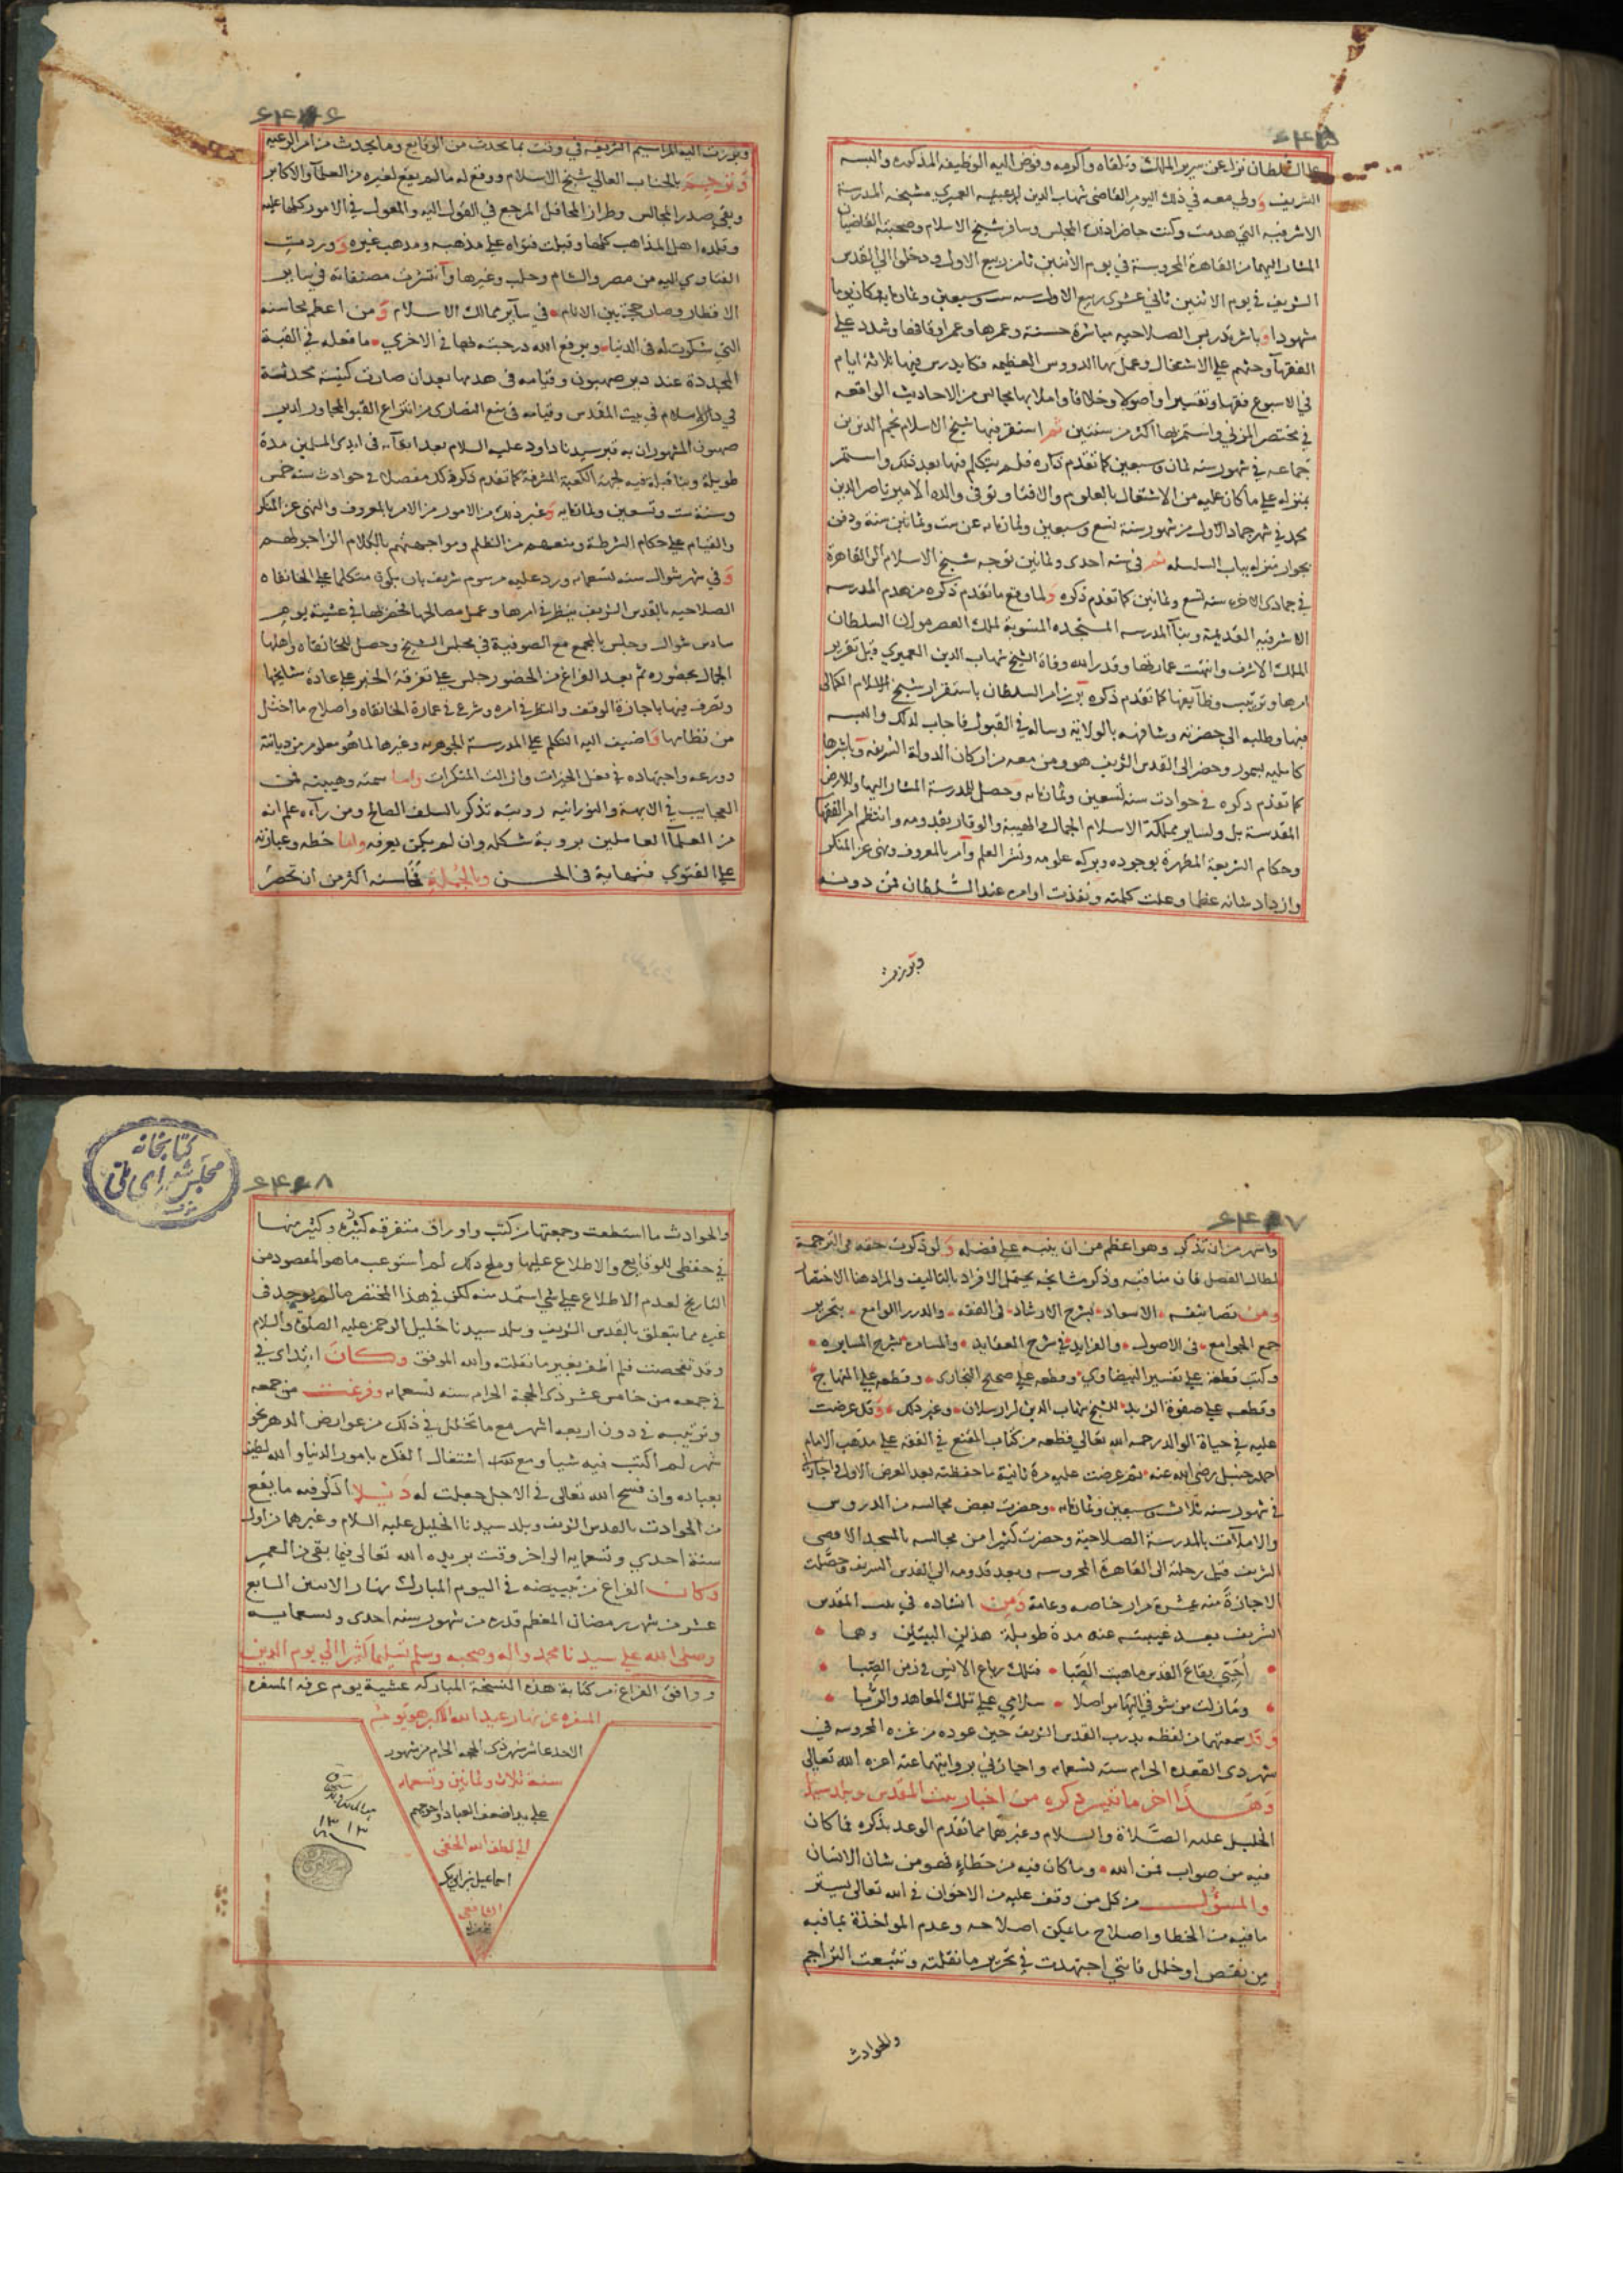 السلطان نزل عن سرير الملك وتلقاه واكرمه وفوض اليه الوظيفه المذكوره والبسه
التشريف وولي معه في ذلك اليوم القاضي شهاب الدين العميري مشيخه المدرسة
الاشرفيه التي هدمت وكنت حاضرا ذلك المجلس وسافر شيخ الاسلام وصحبته القاضيان
المشار اليهما من القاهرة المحروسة في يوم الاثنين ثامن ربيع الاول ودخلوا الى القدس
الشريف في يوم الاثنين ثاني عشرى ربيع الاول سنه ست وسبعين وثمانمايه وكان يوما
مشهودا وباشر تدريس الصلاحيه مباشرة حسنة وعمرها وعمر اوقافها وشدد على
الفقهآ وحثهم على الاشتغال وعمل بها الدروس العظيمه فكان يدرس فيها ثلاثة ايام
في الاسبوع فقها وتفسيرا واصولا وخلافا واملا بها مجالس من الاحاديث الواقعه
في مختصر المزني واستمر بها اكثر من سنتين ثم استقر فيها شيخ الاسلام نجم الدين بن
جماعه في شهور سنه ثمان وسبعين كما تقدم ذكره فلم يتكلم فيها بعد ذلك واستمر
بمنزله على ما كان عليه من الاشتغال بالعلوم والافتا وتوفى والده الامير ناصر الدين
محمد في شهر جماد الاول من شهور سنة تسع وسبعين وثمانمايه عن ست وثمانين سنة ودفن
بجوار منزله بباب السلسله ثم في سنه احدى وثمانين توجه شيخ الاسلام الى القاهرة
في جمادى الاخره سنه تسع وثمانين كما تقدم ذكره ولما وقع ما تقدم ذكره من هدم المدرسه
الاشرفيه القديمة وبنآ المدرسه المستجده المنسوبة لملك العصر مولانا السلطان
الملك الاشرف وانتهت عمارتها وقدر الله وفاة الشيخ شهاب الدين العميري قبل تقرير
امرها وترتيب وظايفها كما تقدم ذكره برز امر السلطان باستقرار شيخ الاسلام الكمالى
فيها وطلبه الى حضرته وشافهه بالولاية وساله في القبول فاجاب لذلك والبسه
كامليه بسمور وحضر الى القدس الشريف هو ومن معه من اركان الدولة الشريفه وباشرها
كما تقدم ذكره في حوادث سنه تسعين وثمانمايه وحصل للمدرسة المشار اليها وللارض
المقدسة بل ولساير مملكة الاسلام الجمال والهيبة والوقار بقدومه وانتظم امر الفقها
وحكام الشريعة المطهرة بوجوده وبركه علومه ونشر العلم وآمر بالمعروف ونهى عن المنكر
وازداد شانه عظما وعلت كلمته ونفذت اوامره عند السلطان فمن دونه
وبرزت
وبرزت اليه المراسيم الشريفه في وقت بما يحدث من الوقايع وما يتجدث من امر الرعيه
وترجم بالجناب العالي شيخ الاسلام ووقع له ما لم يقع لغيره من العلمآ والاكابر
وبقى صدر المجالس وطراز المحافل المرجع في القول اليه والمعول في الامور كلها عليه
وقلده اهل المذاهب كلها وقبلت فتواه على مذهبه ومذهب غيره ووردت
الفتاوى اليه من مصر والشام وحلب وغيرها وانتشرت مصنفاته في ساير
الاقطار وصار حجة بين الانام في سآير ممالك الاسلام ومن اعظم محاسنه
التي شكرت له في الدنيا ويرفع الله درجته بها في الاخري ما فعله في القبة
المجددة عند دير صهيون وقيامه في هدمها بعد ان صارت كنيسة محدثة
في دار الاسلام في بيت المقدس وقيامه في منع النصارى من انتزاع القبو المجاور لدير
صهيون المشهور ان به قبر سيدنا داود عليه السلام بعد ابقآئه في ايدى المسلمين مدة
طويلة وبنا قبلة فيه لجهة الكعبة المشرفة كما تقدم ذكره كل مفصلا في حوادث سنه خمس
وسنة ست وتسعين وثمانمايه وغير ذلك من الامور من الامر بالمعروف والنهى عن المنكر
والقيام على حكام الشرطة ومنعهم من الظلم ومواجهتهم بالكلام الزاجر لهم
وفي شهر شوال سنه تسعمايه ورد عليه مرسوم شريف بان يكون متكلما على الخانقاه
الصلاحيه بالقدس الشريف ينظر في امرها وعمل مصالحها فحضر لها في عشية يوم
سادس شوال وجلس بالمجمع مع الصوفية في مجلس الشيخ وحصل للخانقاه واهلها
الجمال بحضوره ثم بعد الفراغ من الحضور جلس على تفرقة الخبز على عادة مشايخها
وتصرف فيها باجازة الوقف والنظر في امره وشرع في عمارة الخانقاه واصلاح ما اختل
من نظامها واضيف اليه التكلم على المدرسة الجوهريه وغيرها لما هو معلوم من ديانته
وورعه واجتهاده في فعل الخيرات وازالت المنكرات واما سمته وهيبته فمن
العجايب في الابهة والنورانيه رويته تذكر بالسلف الصالح ومن رآه علم انه
من العلمآ العاملين بروية شكله وان لم يكن يعرفه واما خطه وعبارته
على الفتوى فنهاية في الحسن وبالجملة فمحاسنه اكثر من ان تحصر
واشهر من ان تذكر وهو اعظم من ان ينبه على فضله ولو ذكرت حقه في الترجمة
لطال الفصل فان مناقبه وذكر مشايخه يحتمل الافراد بالتاليف والمراد هنا الاختصار
ومن تصانيفه الاسعاد بشرح الارشاد في الفقه والدرر اللوامع بتحرير
جمع الجوامع في الاصول والفرايد في شرح العقايد والمسامرة بشرح المسايره
وكتب قطعة على تفسير البيضاوى وقطعه على صحيح البخارى وقطعه على المنهاج
وقطعه على صفوة الزبد للشيخ شهاب الدين ارسلان وغير ذلك وقد عرضت
عليه في حياة الوالد رحمه الله تعالى قطعه من كتاب المقنع في الفقه على مذهب الامام
احمد حنبل رضى الله عنه ثم عرضت عليه مرة ثانية ما حفظته بعد العرض الاول واجازني
في شهور سنه ثلاث وسبعين وثمانمايه وحضرت بعض مجالسه من الدروس
والاملآت بالمدرسة الصلاحية وحضرت كثيرا من مجالسه بالمسجد الاقصى
الشريف قبل رحلته الى القاهرة المحروسه وبعد قدومه الى القدس الشريف وحصلت
الاجازة منه عشرة مرار خاصه وعامة ومن انشاده في بيت المقدس
الشريف بعد غيبته عنه مدة طويلة هذين البيتين وهما
أحَيِّي بقاعَ القدس ما هبت الصَّبا فتلك رباع الانس في زمن الصِّبا
وما زلت من شوقي اليها مواصلا سلامي على تلك المعاهد والرُبا
وقد سمعتهما من لفظه بدرب القدس الشريف حين عوده من غزه المحروسه في
شهر ذى القعده الحرام سنه تسعمايه واجازني بروايتهما عنه اعزه الله تعالى
وهـذا اخر ما تيسر ذكره من اخبار بيت المقدس وبلد سيدنا
الخليل عليه الصَّلاة والسلام وغيرهما مما تقدم الوعد بذكره فما كان
فيه من صواب فمن الله وما كان فيه من خطاءٍ فهو من شان الانسان
والمسؤل من كل من وقف عليه من الاخوان في الله تعالى يستر
ما فيه من الخطا واصلاح ما يمكن اصلاحه وعدم المواخذة بما فيه
من نقص او خلل فانني اجتهدت في تحرير ما نقلته وتتبعت التراجم
والحوادث
والحوادث ما استطعت وجمعتها من كتب واوراق متفرقه كثيرة وكثير منها
في حفظى للوقايع والاطلاع عليها ومع ذلك لم استوعب ما هو المقصود من
التاريخ لعدم الاطلاع على شي استمد منه لكن في هذا المختصر ما لم يوجد في
غيره مما يتعلق بالقدس الشريف وبلد سيدنا خليل الرحمن عليه الصلوة والسلام
وقد تفحصت فلم اظفر بغير ما نقلته والله الموفق وكان ابتداى في
في جمعه من خامس عشر ذى الحجة الحرام سنه تسعمايه وفرغت من جمعه
وترتيبه في دون اربعه اشهر مع ما تخلل في ذلك من عوارض الدهر نحو
شهر لم اكتب فيه شيا ومع ذلك اشتغال الفكر بامور الدنيا والله لطيف
بعباده وان فسح الله تعالى في الاجل جعلت له ذيلا اذكر فيه ما يقع
من الحوادث بالقدس الشريف وبلد سيدنا الخليل عليه السلام وغيرهما من اول
سنة احدى وتسعمايه الى اخر وقت يريده الله تعالى فيما بقى من العمر
وكان الفراغ من تبييضه في اليوم المبارك نهار الاثنين السابع
عشر من شهر رمضان المعظم قدره من شهور سنه احدى وتسعمايه
وصلى الله على سيدنا محمد واله وصحبه وسلم تسليما كثيرا الى يوم الدين
ووافق الفراغ من كتابة هذه النسخة المباركه عشية يوم عرفه المسفره
المسفره عن نهار عيد الله الاكبر هو يوم
الاحد عاشر شهر ذى الحجه الحرام من شهور
سنة ثلاث وثمانين وتسعمايه
على يد اضعف العباد واحوجهم
الى لطف الله الخفي
اسماعيل بن
الشافعى
كتابخانه
مجلس شوراى ملى
١٣١٣